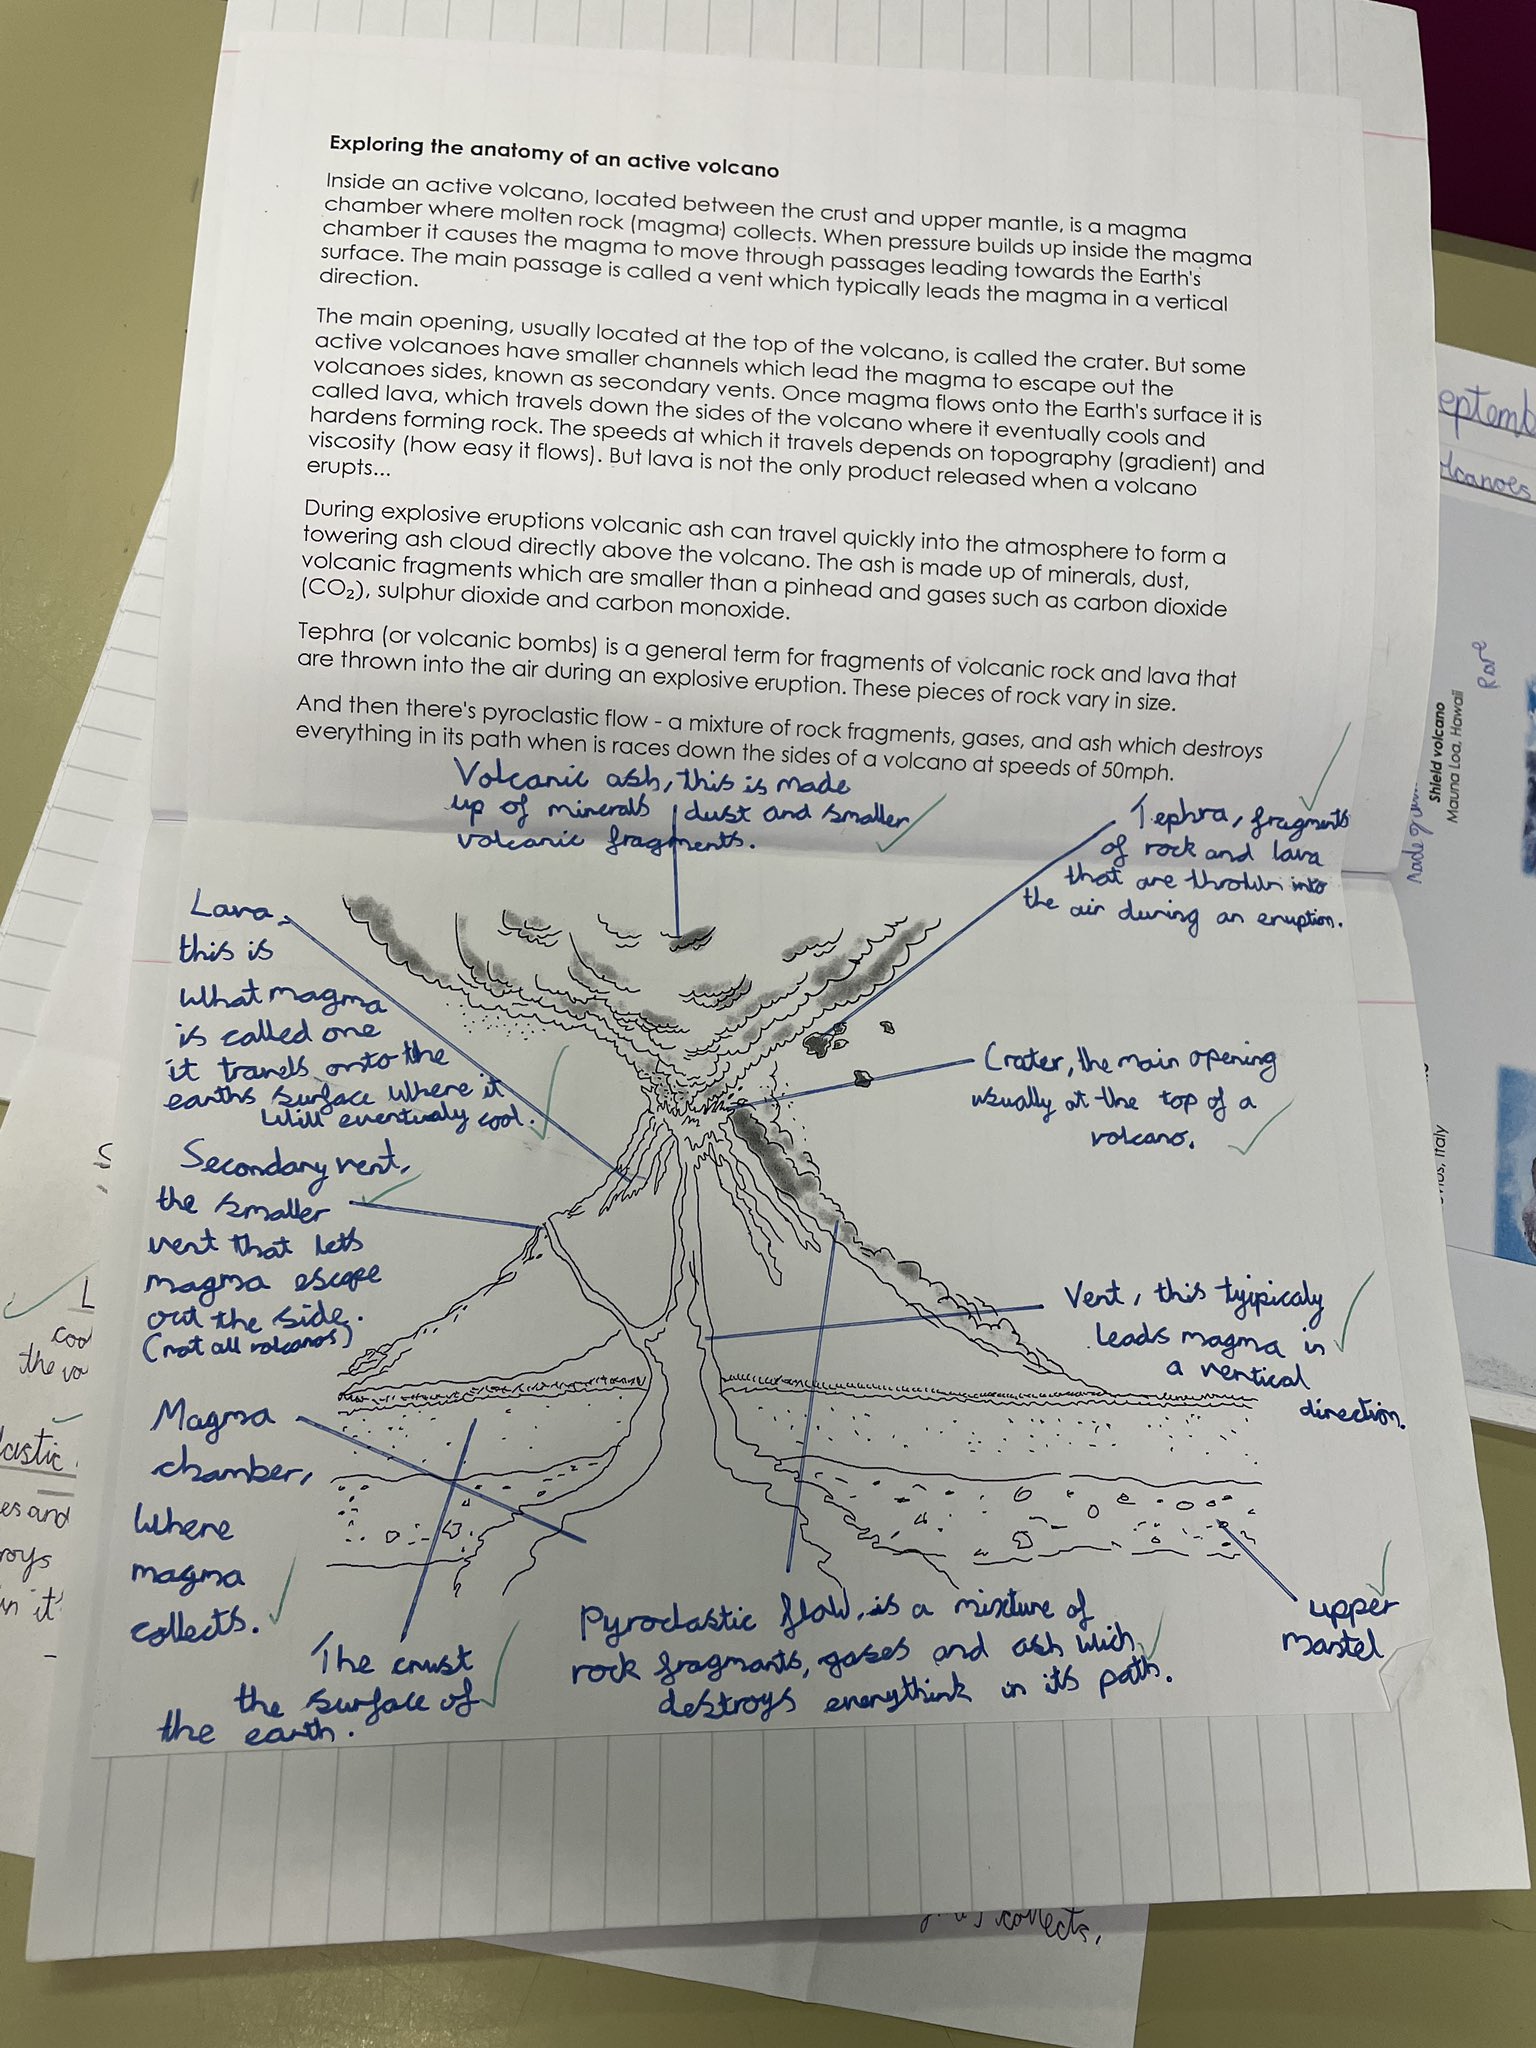 Exploring the anatomy of an active volcano
Inside an active volcano, located between the crust and upper mantle, is a magma
chamber where molten rock (magma) collects. When pressure builds up inside the magma
chamber it causes the magma to move through passages leading towards the Earth's
surface. The main passage is called a vent which typically leads the magma in a vertical
direction.
The main opening, usually located at the top of the volcano, is called the crater. But some
active volcanoes have smaller channels which lead the magma to escape out the
volcanoes sides, known as secondary vents. Once magma flows onto the Earth's surface it is
called lava, which travels down the sides of the volcano where it eventually cools and
hardens forming rock. The speeds at which it travels depends on topography (gradient) and
viscosity (how easy it flows). But lava is not the only product released when a volcano
erupts...
During explosive eruptions volcanic ash can travel quickly into the atmosphere to form a
towering ash cloud directly above the volcano. The ash is made up of minerals, dust,
volcanic fragments which are smaller than a pinhead and gases such as carbon dioxide
(CO₂), sulphur dioxide and carbon monoxide.
Tephra (or volcanic bombs) is a general term for fragments of volcanic rock and lava that
are thrown into the air during an explosive eruption. These pieces of rock vary in size.
And then there's pyroclastic flow - a mixture of rock fragments, gases, and ash which destroys
everything in its path when is races down the sides of a volcano at speeds of 50mph.
Volcanic ash, this is made
up of minerals dust and smaller
volcanic fragments.
Tephra, fragments
of rock and lava
that are thrown into
the air during an eruption.
Lava,
this is
what magma
is called one
it travels onto the
earths surface where it
will eventualy cool.
Crater, the main opening
usually at the top of a
volcano.
Secondary vent,
the smaller
vent that lets
magma escape
out the side.
(not all volcanos)
Vent, this tyipicaly
leads magma in
a vertical
direction.
Magma
chamber,
where
magma
collects.
The crust
the surface of
the earth.
Pyroclastic flow, is a mixture of
rock fragmants, gases and ash wich
destroys everythink in its path.
upper
mantel
Shield volcano
Mauna Loa, Hawaii
Rare
Italy
coo
the vo
collects,